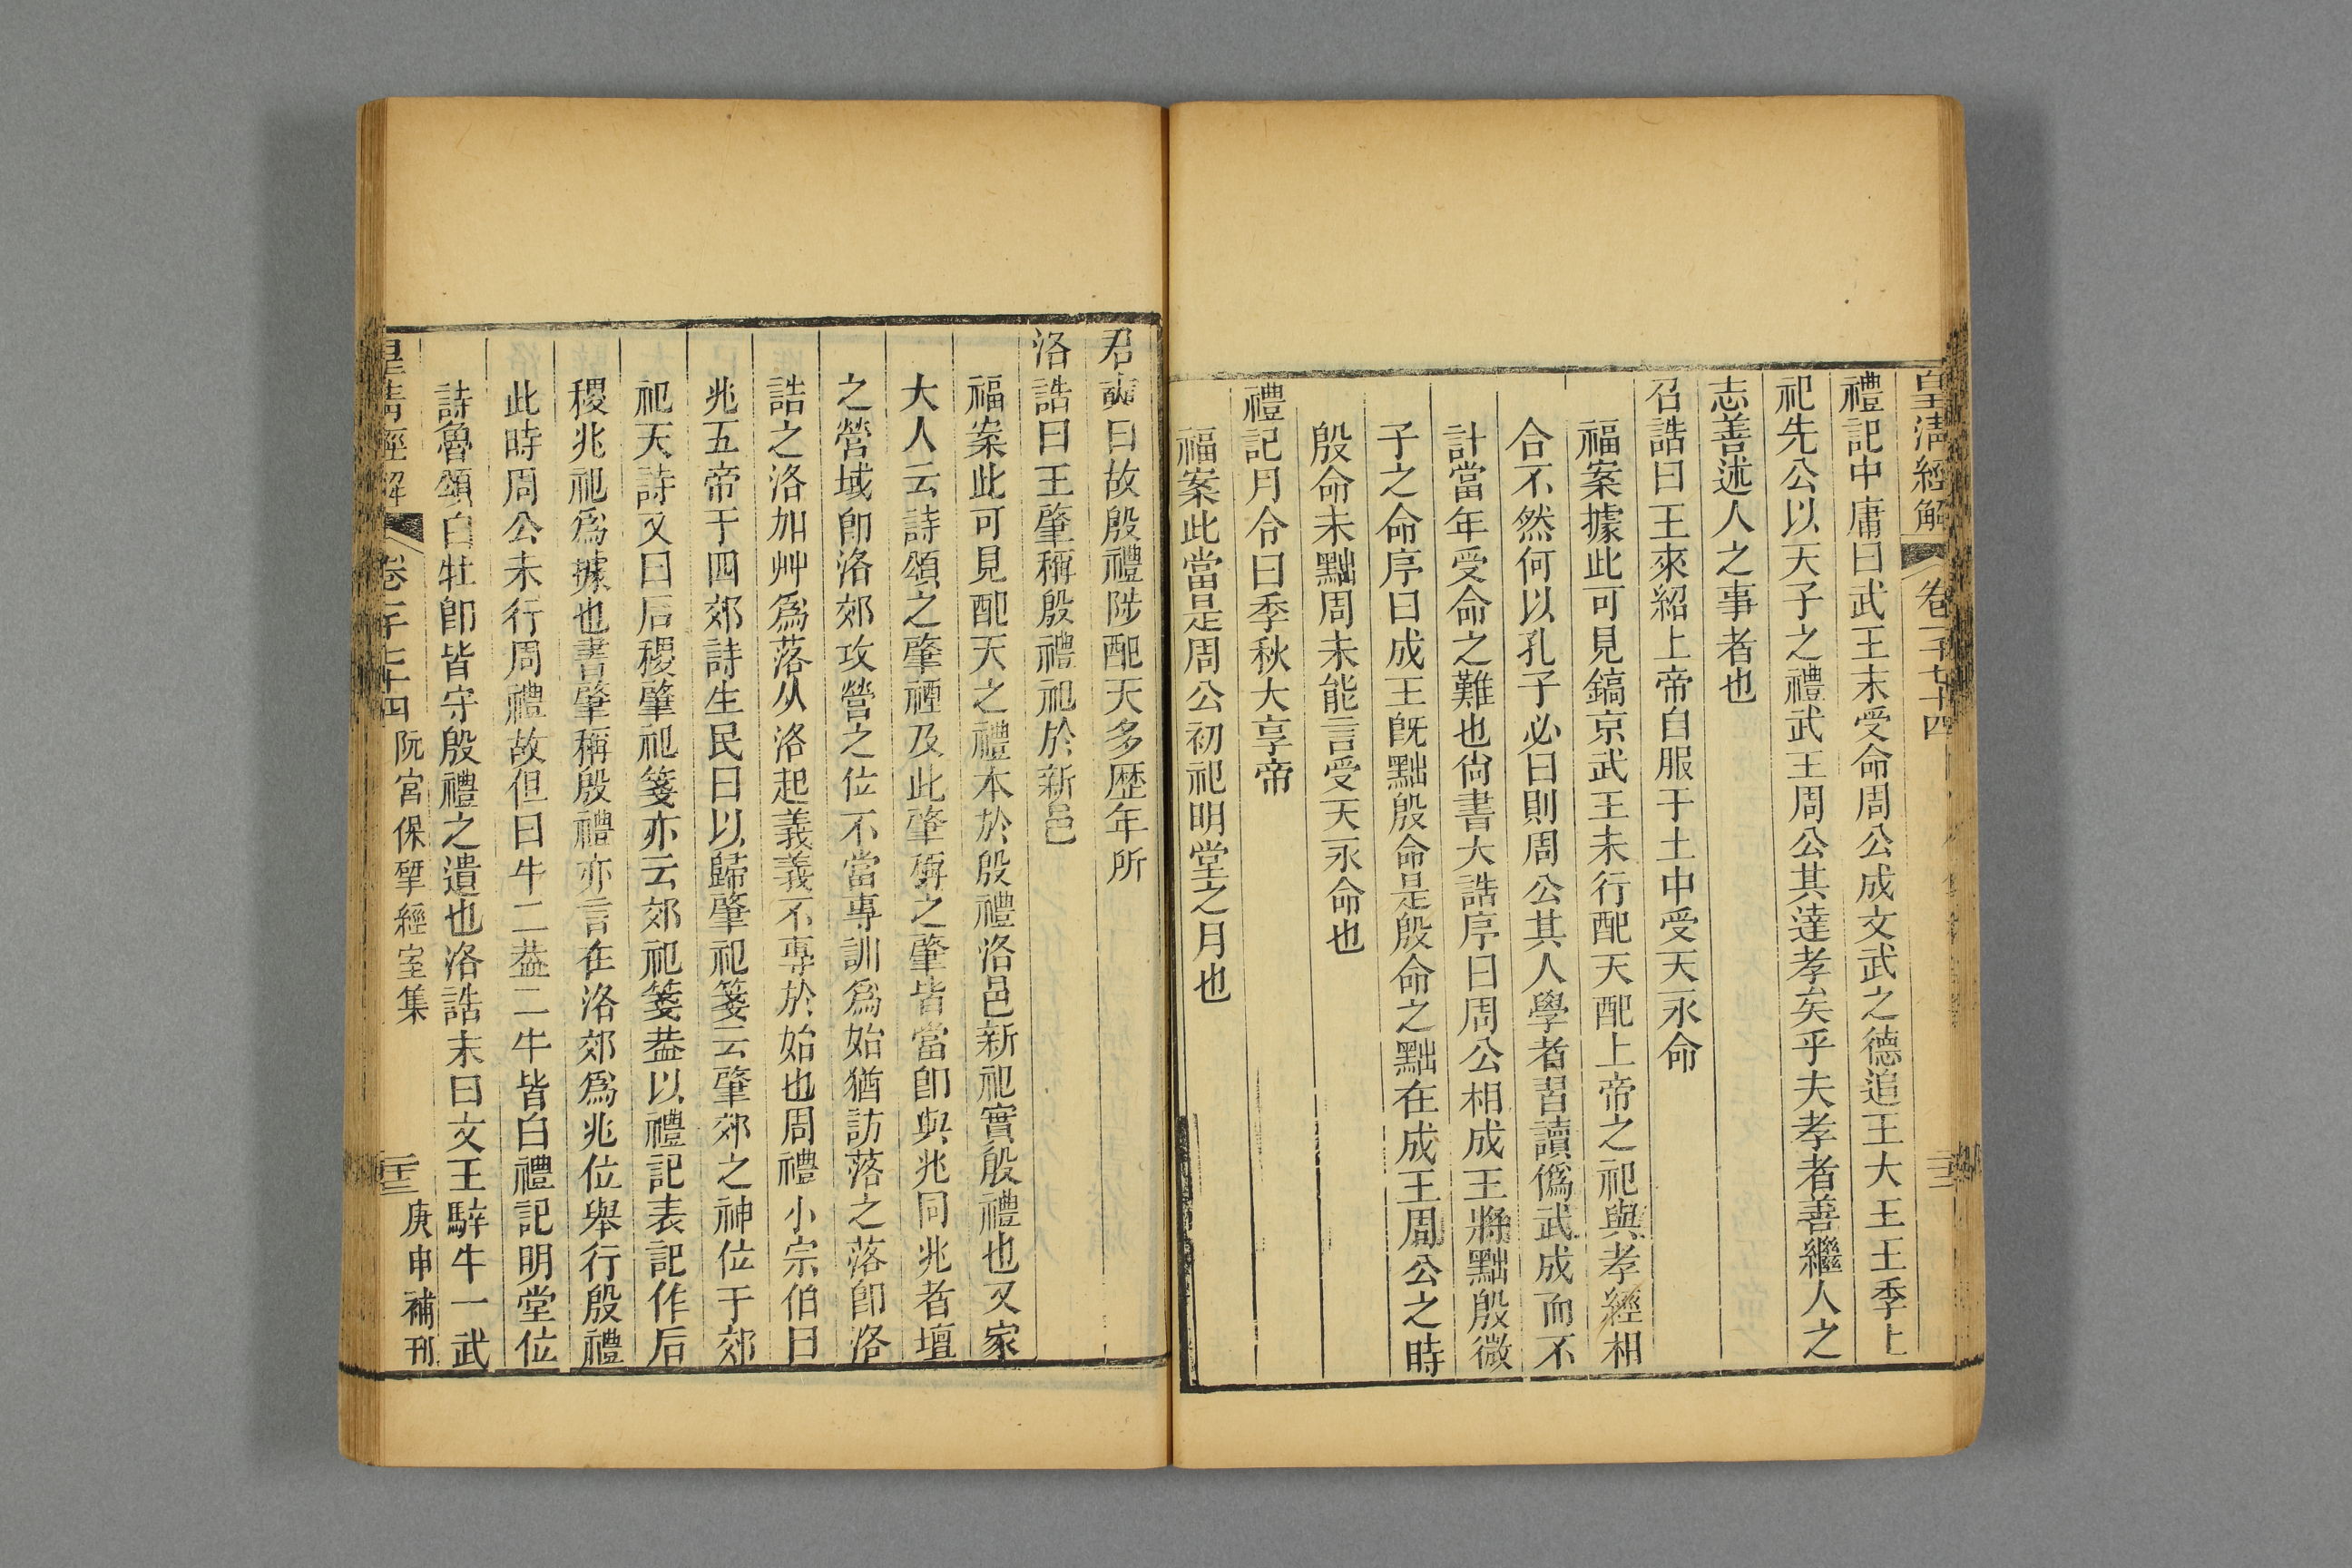 皇清經解 卷一千七十四
禮記中庸曰武王末受命周公成文武之德追王大王王季上
祀先公以天子之禮武王周公其達孝矣乎夫孝者善繼人之
志善述人之事者也
召誥曰王來紹上帝自服于土中受天永命
福案據此可見鎬京武王未行配天配上帝之祀與孝經相
合不然何以孔子必曰則周公其人學者習讀僞武成而不
計當年受命之難也尙書大誥序曰周公相成王將黜殷微
子之命序曰成王旣黜殷命是殷命之黜在成王周公之時
殷命未黜周未能言受天永命也
禮記月令曰季秋大享帝
福案此當是周公初祀明堂之月也
君奭曰故殷禮陟配天多歷年所
洛誥曰王肇稱殷禮祀於新邑
福案此可見配天之禮本於殷禮洛邑新祀實殷禮也又家
大人云詩頌之肇禋及此肇稱之肇皆當卽與兆同兆者壇
之營域卽洛郊攻營之位不當專訓爲始猶訪落之落卽洛
誥之洛加艸爲落从洛起義義不專於始也周禮小宗伯曰
兆五帝于四郊詩生民曰以歸肇祀箋云肇郊之神位于郊
祀天詩又曰后稷肇祀箋亦云郊祀箋葢以禮記表記作后
稷兆祀爲據也書肇稱殷禮亦言在洛郊爲兆位舉行殷禮
此時周公未行周禮故但曰牛二葢二牛皆白禮記明堂位
詩魯頌白牡卽皆守殷禮之遺也洛誥末曰文王騂牛一武
皇清經解 卷一千七十四 阮宮保揅經室集 庚申補刊